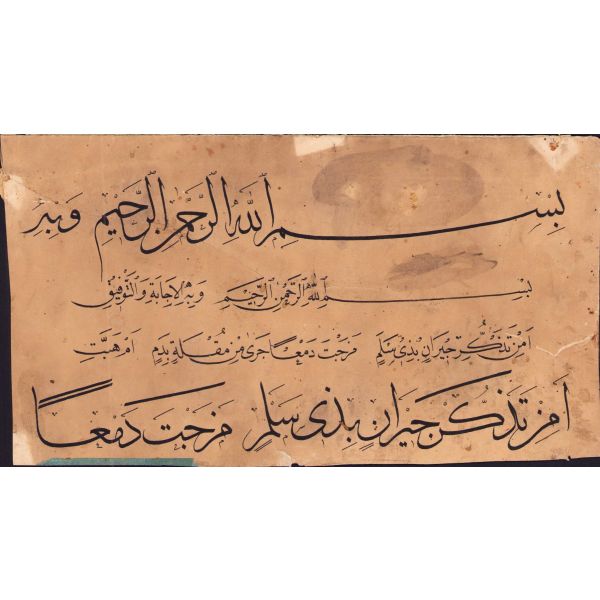 بِسْمِ اللّٰهِ الرَّحْمٰنِ الرَّحِيمِ وَبِهِ
بِسْمِ اللّٰهِ الرَّحْمٰنِ الرَّحِيمِ وَبِهِ الْإِجَابَةِ وَالتَّوْفِيقِ
اَمِنْ تَذَكُّرِ جِيرَانٍ بِذِى سَلَمٍ مَزَجْتَ دَمْعًا جَرٰى مِنْ مُقْلَةٍ بِدَمِ اَمْ هَبَّتِ
اَمِنْ تَذَكُّرِ جِيرَانٍ بِذِى سَلَمٍ مَزَجْتَ دَمْعًا